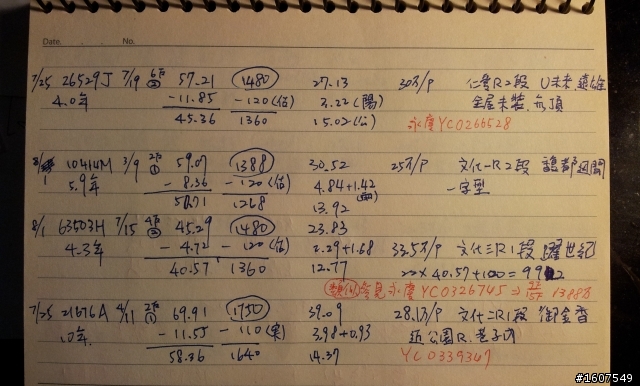 Date. No.
7/25 26529J 7/19 57.21 1480 27.13 30万/P 仁愛R2段 U未來
4.0年 -11.85 -120(估) 3.22(陽) 全屋未裝
45.36 1360 15.02 永慶YC0266528
8/1 10414M 3/9 59.07 1388 30.52 25万/P 文化一R2段
5.9年 -8.36 -120(估) 4.84+1.42 一字型
1268 13.92
8/1 63503H 7/15 45.29 1480 23.83
4.3年 -4.72 -120(估) 2.29+1.68 33.5万/P 文化三R1段 躍世紀
40.57 1360 12.77 22×40.57+100=992
永慶YC0326745
7/25 21676A 4/11 69.91 1750 39.09 28.1万/P 文化二R1段 御金香
10年 -11.55 -110 3.98+0.93 近公園R.
58.36 1640 14.37 YC0339347
#1607549